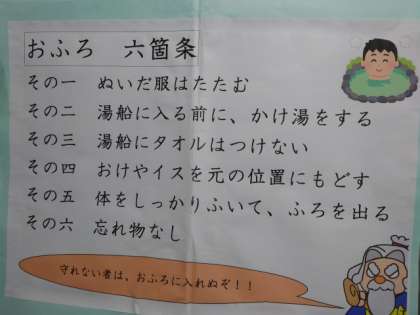 おふろ 六箇条
その一 ぬいだ服はたたむ
その二 湯船に入る前に、かけ湯をする
その三 湯船にタオルはつけない
その四 おけやイスを元の位置にもどす
その五 体をしっかりふいて、ふろを出る
その六 忘れ物なし
守れない者は、おふろに入れぬぞ！！